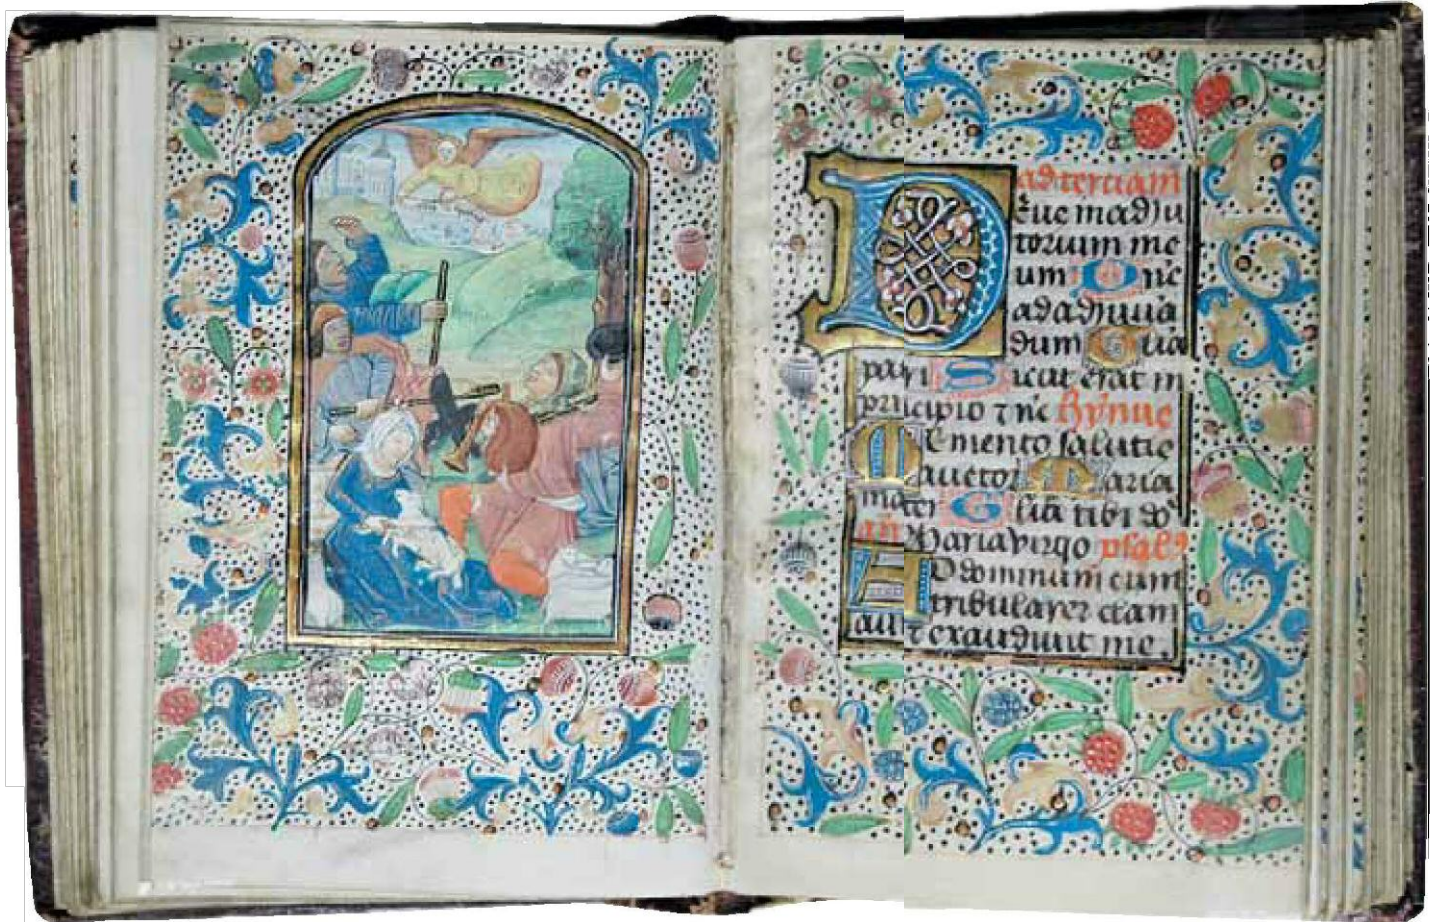 ad terciam
Deus in adiu
torium me
um One
ad adiuua
dum Glia
patri Sicut erat in
principio ⁊ nc hymnus
Memento salutis
auctor Maria
mater Glia tibi do
an Maria virgo psal
AD dominum cum
tribularer clam
aui ⁊ exaudiuit me.